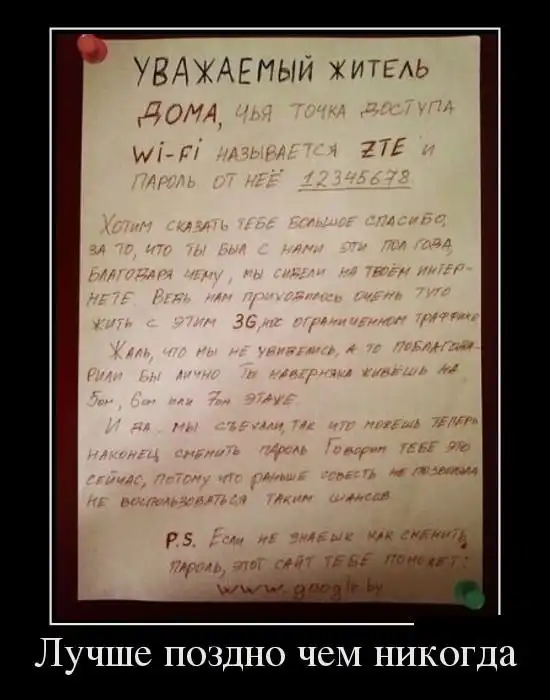 УВАЖАЕМЫЙ ЖИТЕЛЬ
ДОМА, ЧЬЯ ТОЧКА ДОСТУПА
Wi-Fi НАЗЫВАЕТСЯ ZTE И
ПАРОЛЬ ОТ НЕЁ 12345678.
ХОТИМ СКАЗАТЬ ТЕБЕ БОЛЬШОЕ СПАСИБО,
ЗА ТО, ЧТО ТЫ БЫЛ С НАМИ ЭТИ ПОЛ ГОДА,
БЛАГОДАРЯ ЧЕМУ, МЫ СИДЕЛИ НА ТВОЁМ ИНТЕР-
НЕТЕ. ВЕДЬ НАМ ПРИХОДИЛОСЬ ОЧЕНЬ ТУГО
ЖИТЬ С ЭТИМ 3G, ОГРАНИЧЕННОМ ТРАФФИКЕ
ЖАЛЬ, ЧТО МЫ НЕ УВИДЕЛИСЬ, А ТО ПОБЛАГОДА-
РИЛИ БЫ ЛИЧНО ТЫ НАВЕРНЯКА ЖИВЁШЬ НА
5ом, 6ом или 7ом ЭТАЖЕ.
И ДА.. МЫ СЪЕХАЛИ, ТАК ЧТО МОЖЕШЬ ТЕПЕРЬ
НАКОНЕЦ СМЕНИТЬ ПАРОЛЬ ГОВОРИМ ТЕБЕ ЭТО
СЕЙЧАС, ПОТОМУ ЧТО РАНЬШЕ СОВЕСТЬ НЕ ПОЗВОЛЯЛА
НЕ ВОСПОЛЬЗОВАТЬСЯ ТАКИМ ШАНСОВ
P.S. ЕСЛИ НЕ ЗНАЕШЬ КАК СМЕНИТЬ
ПАРОЛЬ, ЭТОТ САЙТ ТЕБЕ ПОМОЖЕТ:
www.google.by
Лучше поздно чем никогда